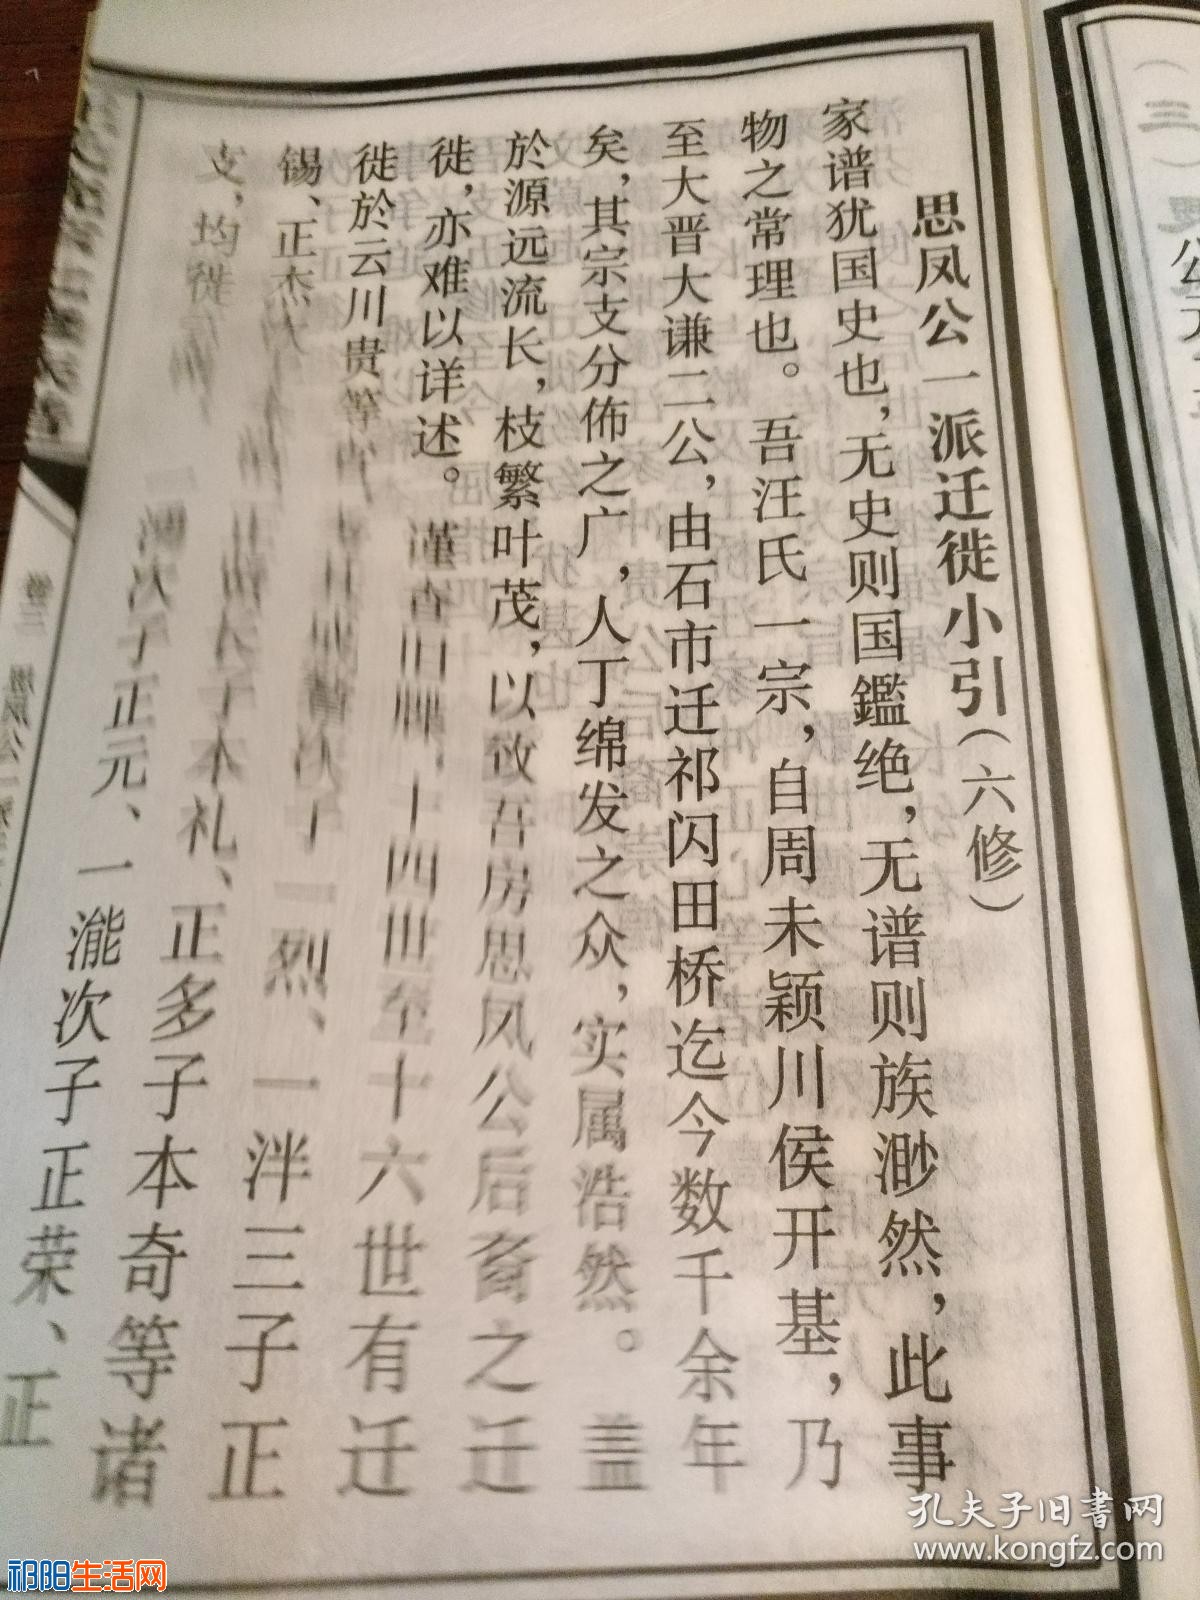 思凤公一派迁徙小引（六修）
家谱犹国史也，无史则国鑑绝，无谱则族渺然，此事
物之常理也。吾汪氏一宗，自周未颖川侯开基，乃
至大晋大谦二公，由石市迁祁闪田桥迄今数千余年
矣，其宗支分佈之广，人丁绵发之众，实属浩然。盖
於源远流长，枝繁叶茂，以致吾房思凤公后裔之迁
徙，亦难以详述。谨查旧牒，十四世至十六世有迁
徙於云川贵等 次子一烈、一泮三子正
锡、正杰 长子本礼、正多子本奇等诸
支，均徙 次子正元、一瀧次子正荣、正
卷三
公元
三
孔夫子旧书网
www.kongfz.com
祁阳生活网